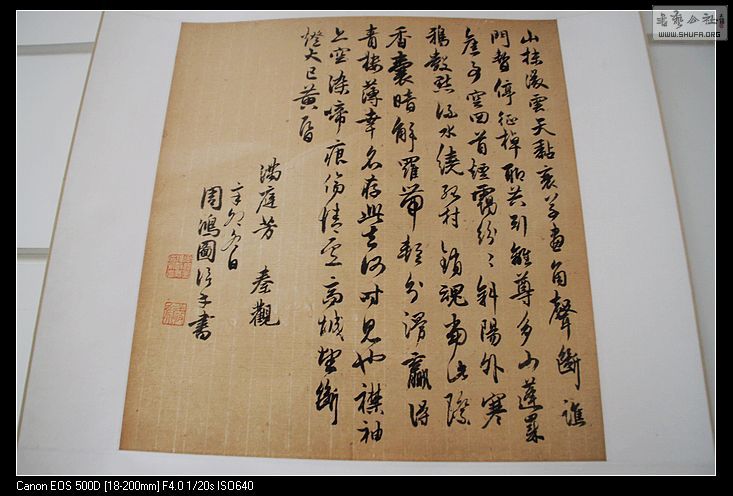 書藝公社
WWW.SHUFA.ORG
山抹微雲天黏衰草畫角聲斷譙
門暫停征棹聊共引離尊多少蓬萊
舊事空回首煙靄紛〻斜陽外寒
鴉數點流水繞孤村銷魂當此際
香囊暗解羅帶輕分漫贏得
青樓薄幸名存此去何時見也襟袖
上空染啼痕傷情處高城望斷
燈火已黃昏
滿庭芳 秦觀
辛卯冬日
周鴻圖信手書
Canon EOS 500D [18-200mm] F4.0 1/20s ISO640